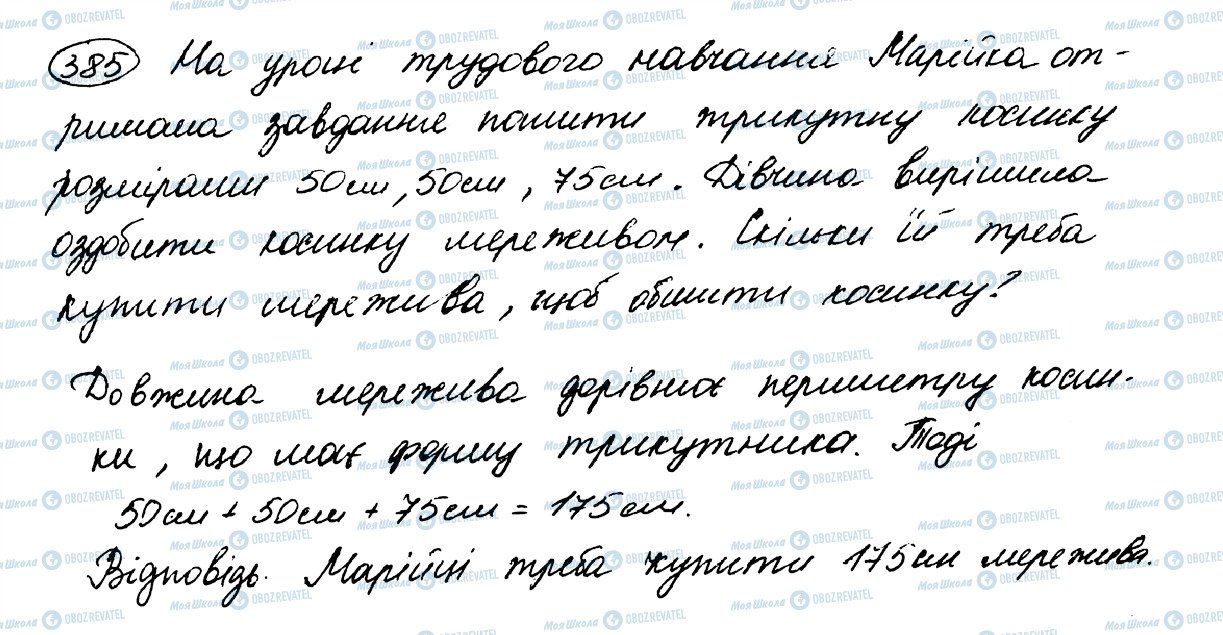 385 На уроці трудового навчання Марійка от-
римала завдання пошити трикутну косинку
розмірами 50см, 50см, 75см. Дівчина вирішила
оздобити косинку мереживом. Скільки їй треба
купити мережива, щоб обшити косинку?
Довжина мережива дорівнює периметру косин-
ки, що має форму трикутника. Тоді
50см + 50см + 75см = 175см.
Відповідь. Марійці треба купити 175см мережива.